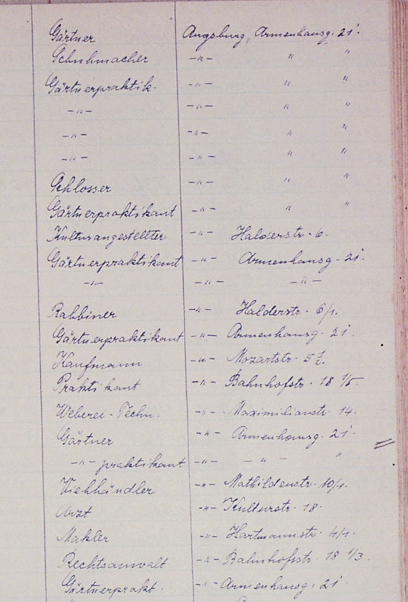 Gärtner Augsburg, Armenhausg. 21.
Schuhmacher -"- " "
Gärtnerpraktik. -"- " "
-"- -"- " "
-"- -"- " "
-"- -"- " "
Schlosser -"- " "
Gärtnerpraktikant -"- " "
Kulturangestellter -"- Halderstr. 6.
Gärtnerpraktikant -"- Armenhausg. 21.
-"- -"- -"-
Rabbiner -"- Halderstr. 6/1.
Gärtnerpraktikant -"- Armenhausg. 21.
Kaufmann -"- Mozartstr.
Praktikant -"- Bahnhofstr. 18 1/5.
Weberei-Techn. -"- Maximilianstr. 14.
Gärtner -"- Armenhausg. 21.
-"- praktikant -"- - " - "
Viehhändler -"- Mathildenstr. 10/1.
Arzt -"- 18.
Makler -"- Hartmannstr. 4/1.
Rechtsanwalt -"- Bahnhofstr. 18 1/3.
Gärtnerprakt. -"- Armenhausg. 21.